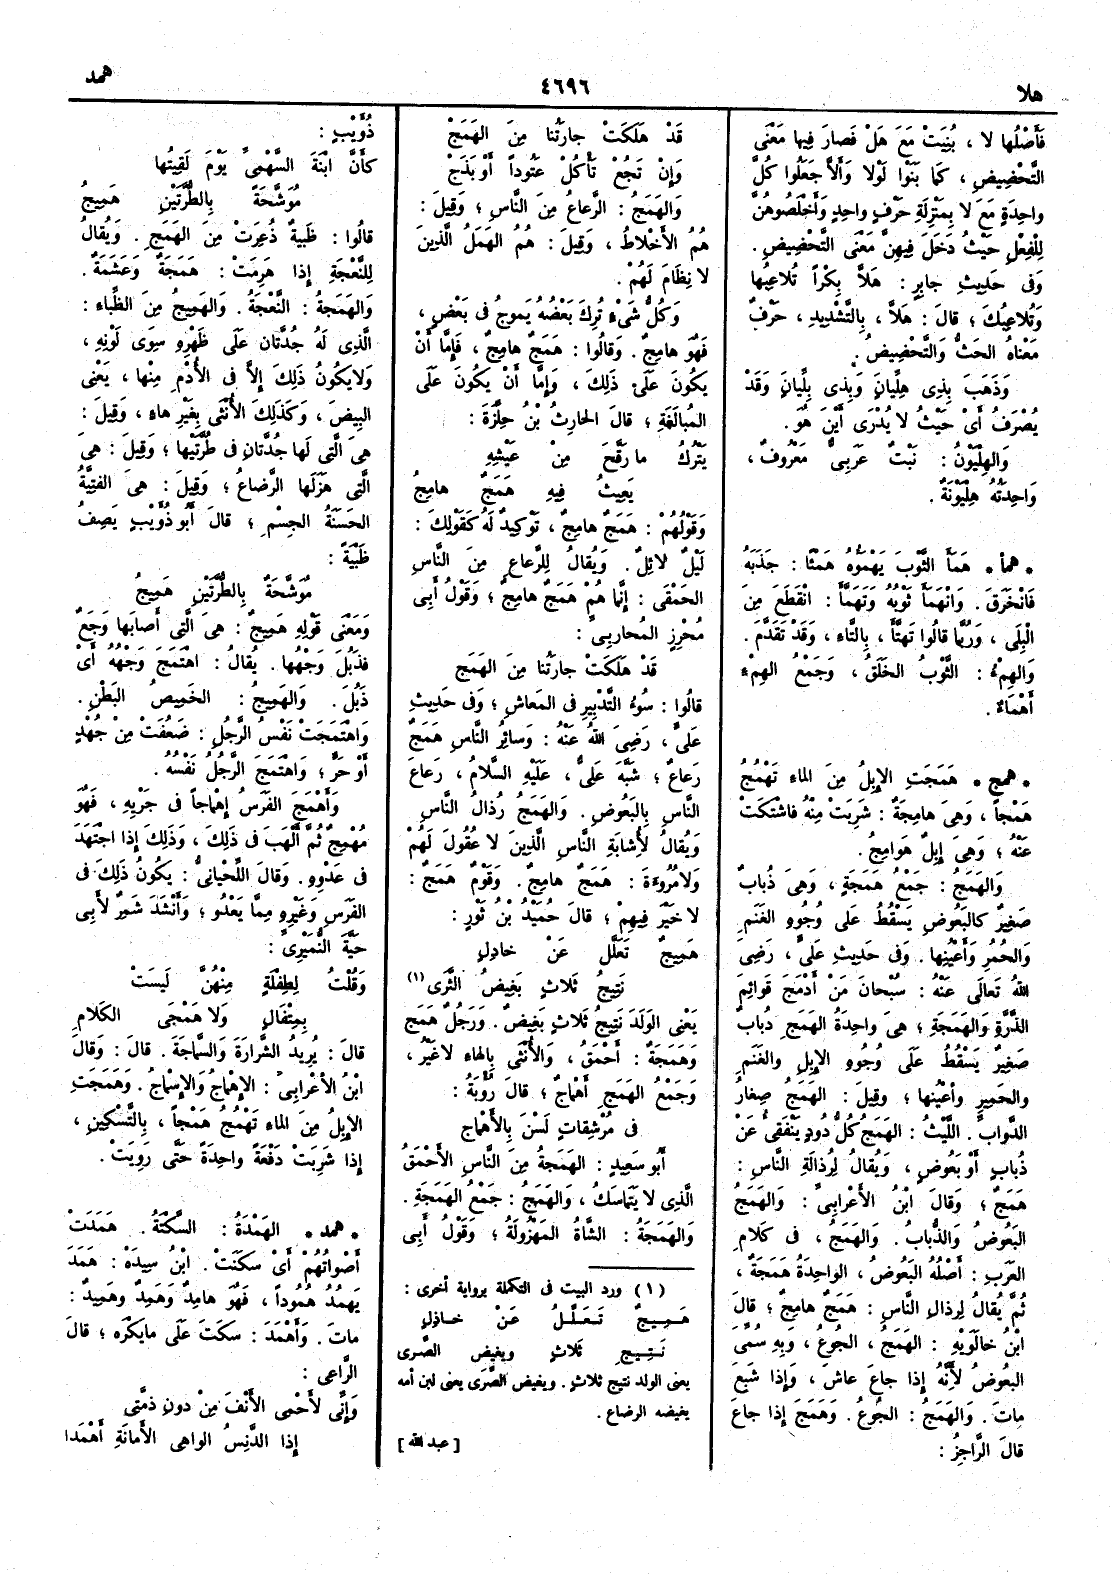 هلا
٤٦٩٦
همد
فَأَصْلُها لا ، بُنِيَتْ مَعَ هَلْ فَصارَ فِيها مَعْنَى
التَّحْضِيضِ ، كَما بَنَوْا لَوْلا وَأَلاَّ جَعَلُوا كُلَّ
واحِدَةٍ مَعَ لا بِمَنْزِلَةِ حَرْفٍ واحِدٍ وَأَخْلَصُوهُنَّ
لِلْفِعْلِ حَيْثُ دَخَلَ فِيهِنَّ مَعْنَى التَّحْضِيضِ .
وَفى حَدِيثِ جابِرٍ : هَلاَّ بِكْراً تُلاعِبُها
وَتُلاعِبُكَ ؛ قالَ : هَلاَّ ، بِالتَّشْدِيدِ ، حَرْفٌ
مَعْناهُ الحَثُّ وَالتَّحْضِيضُ .
وَذَهَبَ بِذِى هِلِّيانَ وَبِذِى بِلِّيانَ وَقَدْ
يُصْرَفُ أَىْ حَيْثُ لا يُدْرَى أَيْنَ هُوَ .
وَالهِلْيَوْنُ : نَبْتٌ عَرَبِىٌّ مَعْرُوفٌ ،
واحِدَتُهُ هِلْيَوْنَةٌ .
• همأ • هَمَأَ الثَّوْبَ يَهْمَؤُهُ هَمْئًا : جَذَبَهُ
فَانْخَرَقَ . وَانْهَمَأَ ثَوْبُهُ وَتَهَمَّأَ : انْقَطَعَ مِنَ
الْبِلَى ، وَرُبَّما قالُوا تَهَتَّأَ ، بِالتَّاءِ ، وَقَدْ تَقَدَّمَ .
وَالهِمْءُ : الثَّوْبُ الخَلَقُ ، وَجَمْعُ الهِمْءِ
أَهْماءٌ .
• همج • هَمَجَتِ الإِبِلُ مِنَ الماءِ تَهْمُجُ
هَمْجاً ، وَهِىَ هامِجَةٌ : شَرِبَتْ مِنْهُ فَاشْتَكَتْ
عَنْهُ ؛ وَهِىَ إِبِلٌ هَوامِجُ .
وَالهَمَجُ : جَمْعُ هَمَجَةٍ ، وَهِىَ ذُبابٌ
صَغِيرٌ كالبَعُوضِ يَسْقُطُ عَلَى وُجُوهِ الغَنَمِ
وَالحُمُرِ وَأَعْيُنِها . وَفى حَدِيثِ عَلىٍّ ، رَضِىَ
اللهُ تَعالَى عَنْهُ : سُبْحانَ مَنْ أَدْمَجَ قَوائِمَ
الذَّرَّةِ وَالهَمَجَةِ ؛ هِىَ واحِدَةُ الهَمَجِ ذُبابٌ
صَغِيرٌ يَسْقُطُ عَلَى وُجُوهِ الإِبِلِ والغَنَمِ
والحَمِيرِ وأعْيُنِها ؛ وَقِيلَ : الهَمَجُ صِغارُ
الدَّوابِّ . اللَّيْثُ : الهَمَجُ كُلُّ دُودٍ يَنْفَقِئُ عَنْ
ذُبابٍ أَوْ بَعُوضٍ ، وَيُقالُ لِرُذالَةِ النَّاسِ :
هَمَجٌ ؛ وَقالَ ابْنُ الأَعْرابِىِّ : وَالهَمَجُ
البَعُوضُ وَالذُّبابُ . وَالهَمَجُ ، فى كَلامِ
العَرَبِ : أَصْلُهُ البَعُوضُ ، الواحِدَةُ هَمَجَةٌ ،
ثُمَّ يُقالُ لِرذالِ النَّاسِ : هَمَجٌ هامِجٌ ؛ قالَ
ابْنُ خالَوَيْهِ : الهَمَجُ ، الجُوعُ ، وَبِهِ سُمِّىَ
البَعُوضُ لأَنَّهُ إِذا جاعَ عاشَ ، وَإِذا شَبِعَ
ماتَ . وَالهَمَجُ : الجُوعُ . وَهَمَجَ إِذا جاعَ
قالَ الرَّاجِزُ :
قَدْ هَلَكَتْ جارَتُنا مِنَ الهَمَجْ
وَإِنْ تَجُعْ تَأْكُلْ عَتُوداً أَوْ بَذَجْ
وَالهَمَجُ : الرَّعاعُ مِنَ النَّاسِ ؛ وَقِيلَ :
هُمُ الأَخْلاطُ ، وَقِيلَ : هُمُ الهَمَلُ الَّذِينَ
لا نِظامَ لَهُمْ .
وَكُلُّ شَىْءٍ تُرِكَ بَعْضُهُ يَموجُ فى بَعْضٍ ،
فَهُوَ هامِجٌ . وَقالُوا : هَمَجٌ هامِجٌ ، فَإِمَّا أَنْ
يَكُونَ عَلَى ذٰلِكَ ، وَإِمَّا أَنْ يَكُونَ عَلَى
المُبالَغَةِ ؛ قالَ الحَارِثُ بْنُ حِلِّزَةَ :
يَتْرُكُ ما رَقَّحَ مِنْ عَيْشِهِ
يَعِيثُ فِيهِ هَمَجٌ هامِجُ
وَقَوْلُهُمْ : هَمَجٌ هامِجٌ ، تَوْكِيدٌ لَهُ كَقَوْلِكَ :
لَيْلٌ لائِلٌ . وَيُقالُ لِلرَّعاعِ مِنَ النَّاسِ
الحَمْقَى : إِنَّما هُمْ هَمَجٌ هامِجٌ ؛ وَقَوْلُ أَبِى
مُحْرِزٍ المُحارِبِىِّ :
قَدْ هَلَكَتْ جارَتُنا مِنَ الهَمَجْ
قالُوا : سُوءُ التَّدْبِيرِ فى المَعاشِ ؛ وَفى حَدِيثِ
عَلىٍّ ، رَضِىَ اللهُ عَنْهُ : وَسائِرُ النَّاسِ هَمَجٌ
رَعاعٌ ؛ شَبَّهَ عَلِىٌّ ، عَلَيْهِ السَّلامُ ، رَعاعَ
النَّاسِ بِالبَعُوضِ . وَالهَمَجُ رُذالُ النَّاسِ .
وَيُقالُ لأُشابَةِ النَّاسِ الَّذِينَ لا عُقُولَ لَهُمْ
وَلا مُرُوءَةَ : هَمَجٌ هامِجٌ . وَقَوْمٌ هَمَجٌ :
لا خَيْرَ فِيهِمْ ؛ قالَ حُمَيْدُ بْنُ ثَوْرٍ :
هَمِيجٌ تَعَلَّلَ عَنْ خاذِلٍ
نَتِيجُ ثَلاثٍ بَغِيضُ الثَّرَى (١)
يَعْنِى الوَلَدَ نَتِيجُ ثَلاثٍ بَغِيضٌ . وَرَجُلٌ هَمَجٌ
وَهَمَجَةٌ : أَحْمَقُ ، وَالأُنْثَى بِالهاءِ لا غَيْرُ ،
وَجَمْعُ الهَمَجِ أَهْماجٌ ؛ قالَ رُؤْبَةُ :
فى مُرْشِقاتٍ لَسْنَ بِالأَهْماجِ
أَبُو سَعِيدٍ : الهَمَجَةُ مِنَ النَّاسِ الأَحْمَقُ
الَّذِى لا يَتَماسَكُ ، وَالهَمَجُ : جَمْعُ الهَمَجَةِ .
وَالهَمَجَةُ : الشَّاةُ المَهْزُولَةُ ؛ وَقَوْلُ أَبِى
( ١ ) ورد البيت فى التكملة برواية أخرى :
هَمِيجٌ تَعَلَّلُ عَنْ خاذِلٍ
نَتِيجِ ثَلاثٍ وبغيض الصَّرى
يعنى الولد نتيج ثلاثٍ . وبغيض الصَّرَى يعنى لبن أمه
يغيضه الرضاع .
[ عبد الله ]
ذُؤَيْبٍ :
كَأَنَّ ابْنَةَ السَّهْمِىِّ يَوْمَ لَقِيتُها
مُوَشَّحَةٌ بِالطُّرَّتَيْنِ هَمِيجُ
قالُوا : ظَبْيَةٌ ذُعِرَتْ مِنَ الهَمَجِ . وَيُقالُ
لِلنَّعْجَةِ إِذا هَرِمَتْ : هَمَجَةٌ وَعَشَمَةٌ .
وَالهَمَجَةُ : النَّعْجَةُ . وَالهَمِيجُ مِنَ الظِّباءِ :
الَّذِى لَهُ جُدَّتانِ عَلَى ظَهْرِهِ سِوَى لَوْنِهِ ،
وَلايَكُونُ ذٰلِكَ إِلاَّ فى الأُدْمِ مِنْها ، يَعْنِى
البِيضَ ، وَكَذٰلِكَ الأُنْثَى بِغَيْرِ هاءٍ ، وَقِيلَ :
هِىَ الَّتِى لَها جُدَّتانِ فى طُرَّتَيْها ؛ وَقِيلَ : هِىَ
الَّتِى هَزَلَها الرَّضاعُ ؛ وَقِيلَ : هِىَ الفَتِيَّةُ
الحَسَنَةُ الجِسْمِ ؛ قالَ أَبُو ذُؤَيْبٍ يَصِفُ
ظَبْيَةً :
مُوَشَّحَةٌ بِالطُّرَّتَيْنِ هَمِيجُ
وَمَعْنَى قَوْلِهِ هَمِيجٌ : هِىَ الَّتِى أَصابَها وَجَعٌ
فَذَبُلَ وَجْهُها . يُقالُ : اهْتَمَجَ وَجْهُهُ أَىْ
ذَبُلَ . وَالهَمِيجُ : الخَمِيصُ البَطْنِ .
وَاهْتَمَجَتْ نَفْسُ الرَّجُلِ : ضَعُفَتْ مِنْ جُهْدٍ
أَوْ حَرٍّ ؛ وَاهْتَمَجَ الرَّجُلُ نَفْسُهُ .
وَأَهْمَجَ الفَرَسُ إِهْماجاً فى جَرْيِهِ ، فَهُوَ
مُهْمِجٌ ثُمَّ أَلْهَبَ فى ذٰلِكَ ، وَذٰلِكَ إِذا اجْتَهَدَ
فى عَدْوِهِ . وَقالَ اللِّحْيانىُّ : يَكُونُ ذٰلِكَ فى
الفَرَسِ وَغَيْرِهِ مِمَّا يَعْدُو ؛ وَأَنْشَدَ شَمِرٌ لأَبِى
حَيَّةَ النُّمَيْرِىِّ :
وَقُلْتُ لِطِفْلَةٍ مِنْهُنَّ لَيْسَتْ
بِمِتْفالٍ وَلا هَمْجَى الكَلامِ
قالَ : يُرِيدُ الشَّرارَةَ وَالسَّماجَةَ . قالَ : وَقالَ
ابْنُ الأَعْرابِىِّ : الإِهْماجُ وَالإِسْماجُ . وَهَمَجَتِ
الإِبِلُ مِنَ الماءِ تَهْمُجُ هَمْجاً ، بِالتَّسْكِينِ ،
إِذا شَرِبَتْ دَفْعَةً واحِدَةً حَتَّى رَوِيَتْ .
• همد • الهَمْدَةُ : السَّكْتَةُ . هَمَدَتْ
أَصْواتُهُمْ أَىْ سَكَنَتْ . ابْنُ سِيدَهْ : هَمَدَ
يَهْمُدُ هُمُوداً ، فَهُوَ هامِدٌ وَهَمِدٌ وَهَمِيدٌ :
ماتَ . وَأَهْمَدَ : سكَتَ عَلَى مايَكْرَه ؛ قالَ
الرَّاعِى :
وَإِنِّى لأَحْمِى الأَنْفَ مِنْ دونِ ذمَّتِى
إِذا الدَّنِسُ الواهِى الأَمانَةِ أَهْمَدا